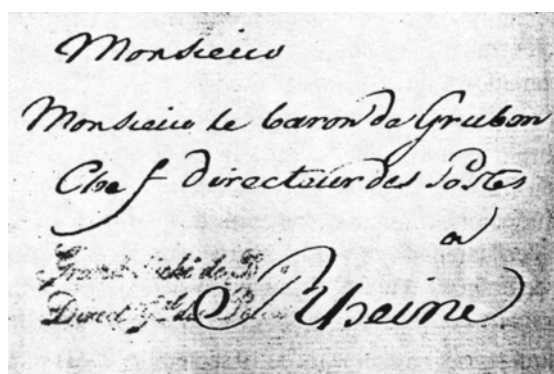 Monsieur
Monsieur le baron de Grubon
Chef directeur des Postes
a
Grand Duché de
Direct Gle de Rheine